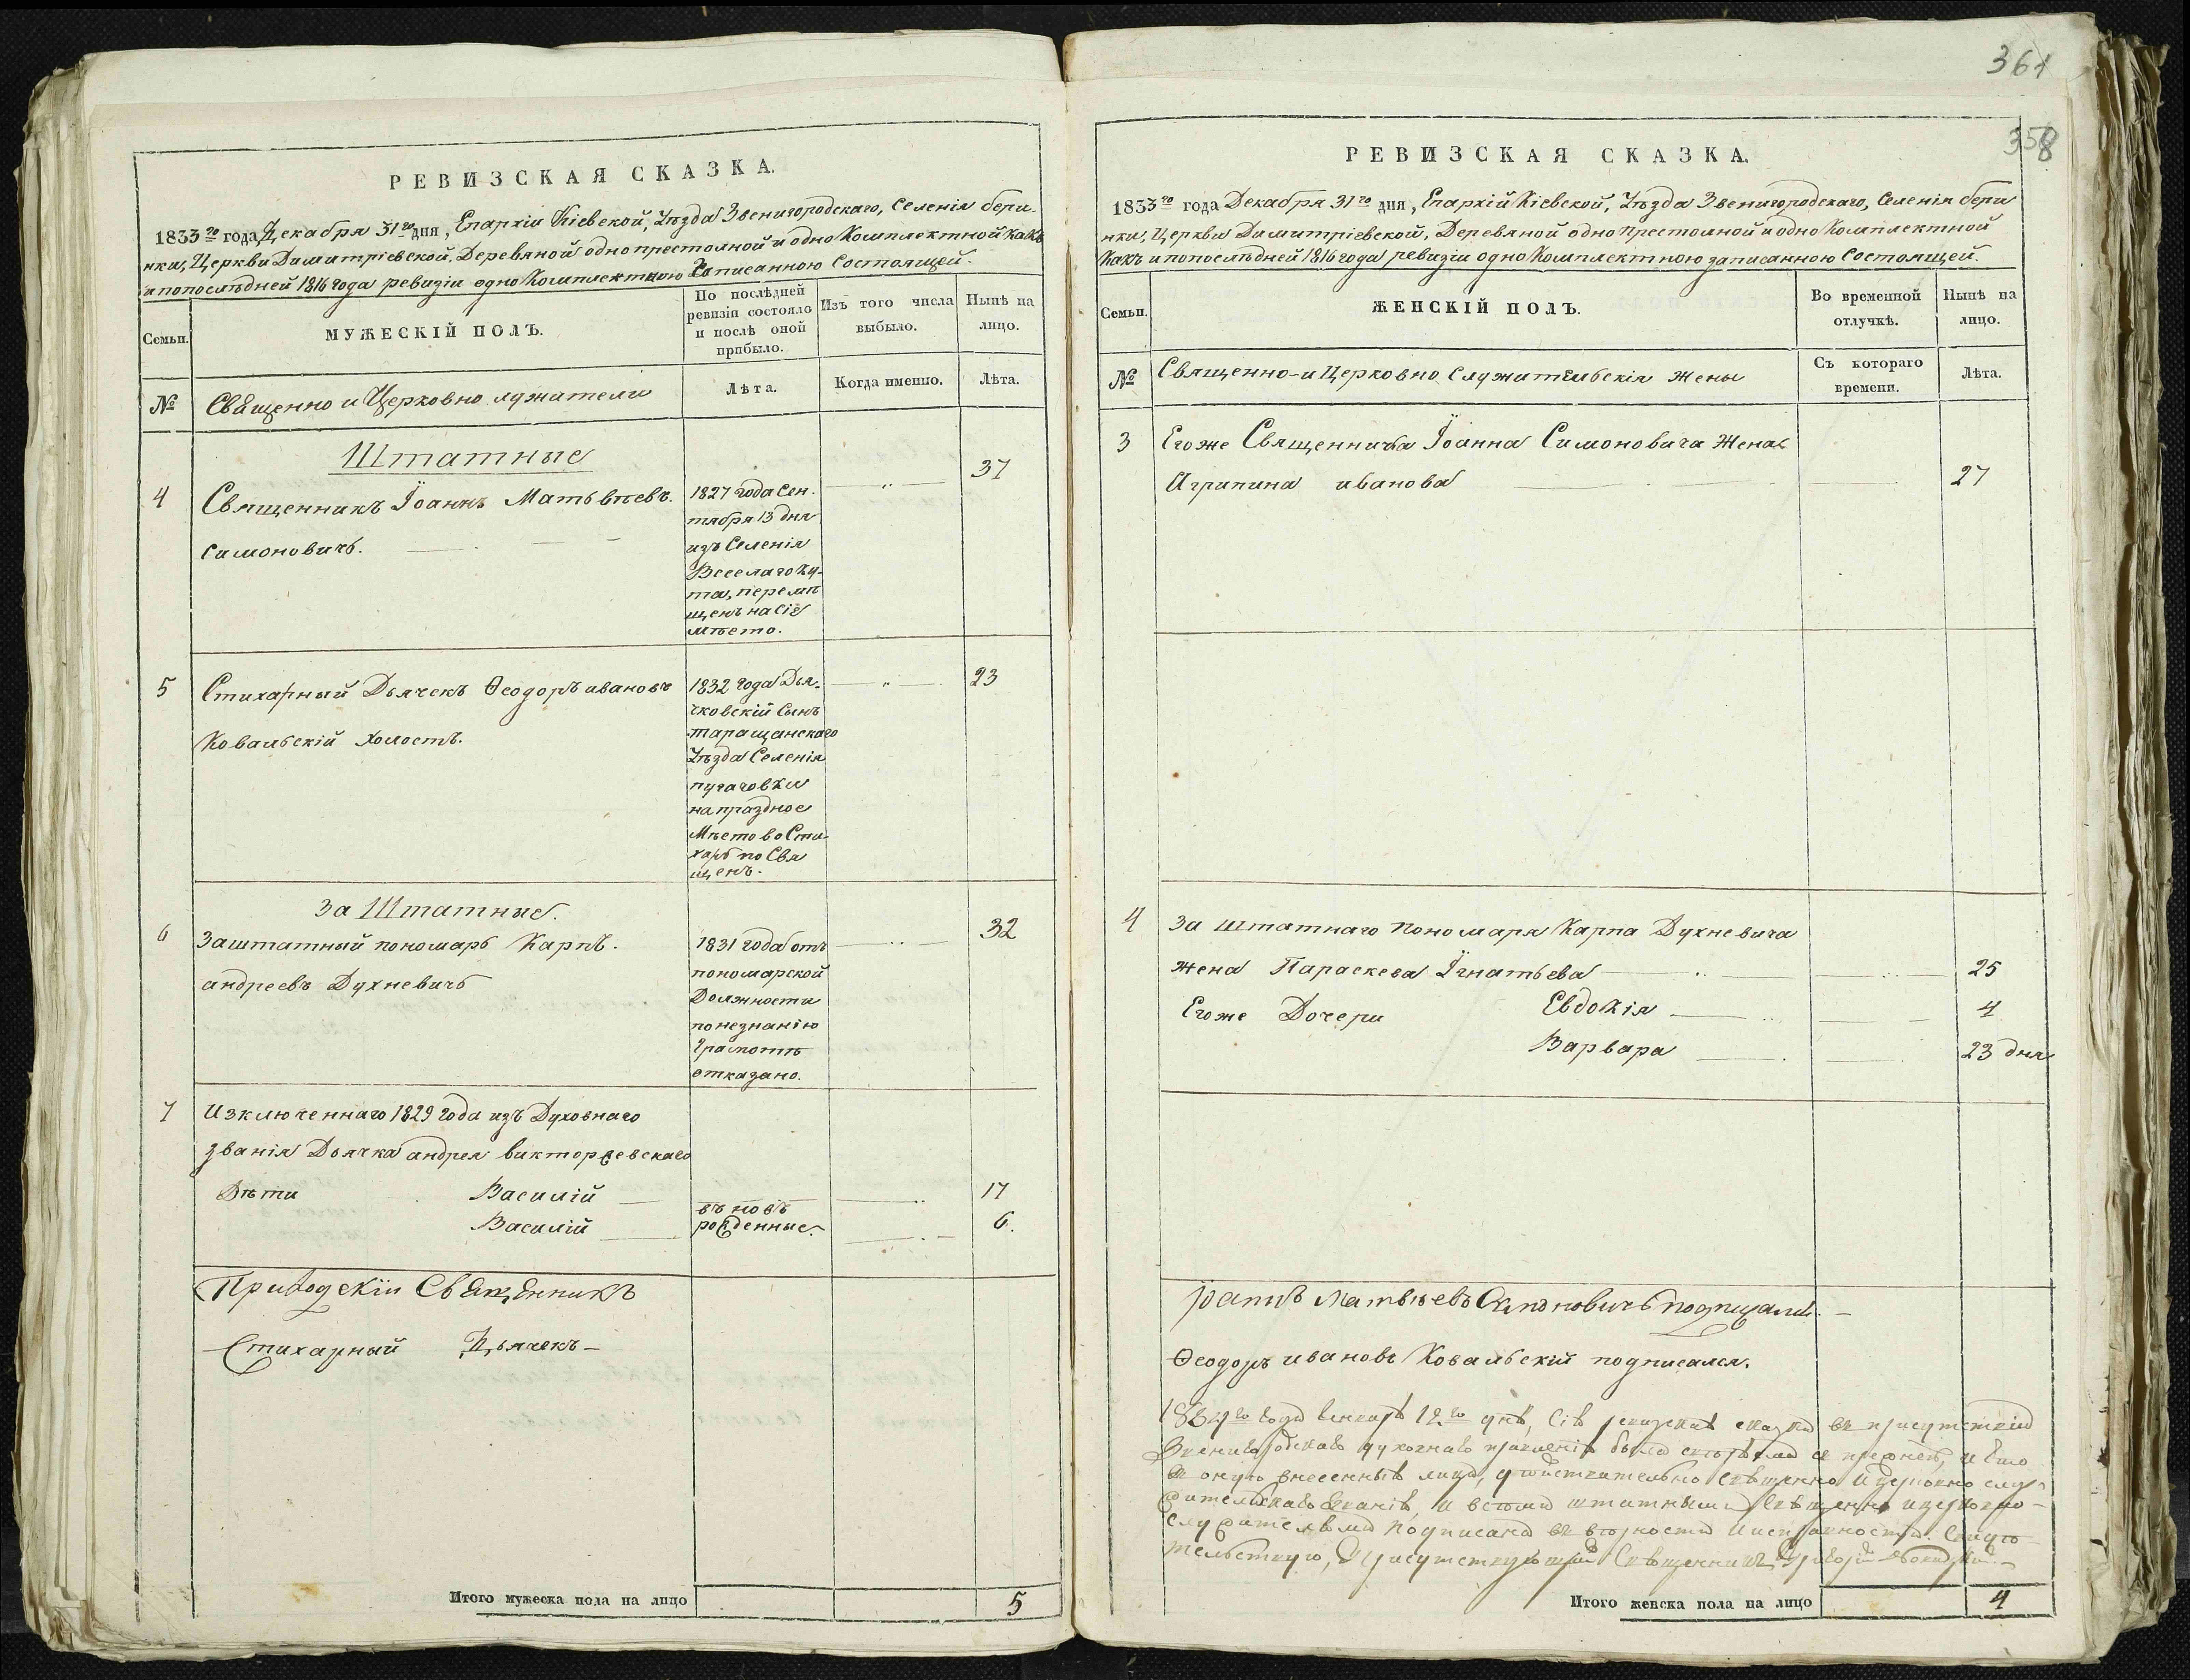 361
358
РЕВИЗСКАЯ СКАЗКА.
1833го года Декабря 31го дня, Епархіи Кіевской, Уѣзда Звенигородскаго, Селенія бери-
нки, Церкви Димитріевской, Деревяной однопрестолной и одно Комплектной какъ
и попослѣдней 1816 года ревизіи одно Комплектною Записанною Состоящей.
Семьи.
МУЖЕСКІЙ ПОЛЪ.
По послѣдней
ревизіи состояло
и послѣ оной
прибыло.
Изъ того числа
выбыло.
Нынѣ на
лицо.
№
Священно и Церковно лужители
Лѣта.
Когда именно.
Лѣта.
Штатные
4
Священникъ Іоаннъ Матьвѣевъ.
Симоновичъ.
1827 года Сен-
тября 13 дня
изъ Селенія
Веселаго Ку-
та, перемѣ
щенъ на Сіе
мѣсто.
37
5
Стихарный Дьячекъ Ѳеодоръ ивановъ
Ковальскій холостъ.
1832 года Дья-
чковскій Сынъ
таращанскаго
Уѣзда Селенія
пугачовки
на праздное
Мѣсто во Сти-
харь по Свя
щенъ.
23
За Штатные.
6
Заштатный пономарь Карпъ.
андреевъ Духневичъ
1831 года отъ
пономарской
Должности
по незнанію
Грамотѣ
отказано.
32
7
Изключеннаго 1829 года изъ Духовнаго
званія Дьячка андрея викторжевскаго
Дѣти Василій
Василій
въ новѣ
рожденные.
17
6.
Приходскіи Священникъ
Стихарный Дьячекъ
Итого мужеска пола на лицо
5
РЕВИЗСКАЯ СКАЗКА.
1833го года Декабря 31го дня, Епархій Кіевской, Уѣзда Звенигородскаго, Селенія бери
нки, Церкви Димитріевской, Деревяной одно престолной и одно Комплектной
Какъ и попослѣдней 1816 года ревизіи одно Комплектною записанною Состоящей.
Семьи.
ЖЕНСКІЙ ПОЛЪ.
Во временной
отлучкѣ.
Нынѣ на
лицо.
№
Священно-и Церковно Служительскія Жены
Съ котораго
времени.
Лѣта.
3
Егоже Священника Іоанна Симоновича Жена
Агрипина иванова
27
4
За штатнаго Пономаря Карпа Духневича
жена Параскева Ігнатьева
25
Егоже Дочери Евдокія
4
Варвара
23 дня
Іоаннъ Матвѣевъ Симоновичъ подписалъ.
Ѳеодоръ ивановъ Ковальскій подписался.
1834го года Генваря 12го дня, Сія ревизская сказка въ присутствіи
Звенигородскаго духовнаго правленія была
въ оную внесенныя лица, дѣйствительно Священно и Церковно слу-
жительскаго званія, и всѣми штатными Священно и церковно-
служителями подписана въ вѣрности и исправности. Свидѣ-
тельствую, Присутствующій Священникъ
Итого женска пола на лицо
4